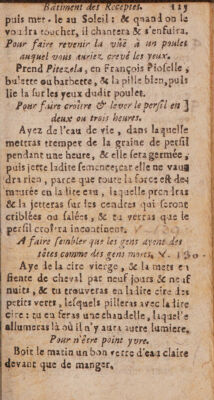 Bâtiment des Receptes. 115
puis met-le au Soleil: & quand on le
voudra toucher, il chantera & s'enfuira.
Pour faire revenir la vûë à un poulet
auquel vous auriez crevé les yeux.
Prend Pilozela, en François Piloselle,
ou barbette, & la pille bien, puis
lie la sur les yeux dudit poulet.
Pour faire croître & lever le persil en
deux ou trois heures.
Ayez de l'eau de vie, dans laquelle
mettras tremper de la graine de persil
pendant une heure, & elle sera germée,
puis jette ladite semence; car elle ne vau-
dra rien, parce que toute la force est de-
meurée en la dite eau, laquelle prendras
& la jetteras sur les cendres qui seront
criblées ou salées, & tu verras que le
persil croîtra incontinent.
A faire sembler que les gens ayent des
têtes comme des gens morts.
Aye de la cire vierge, & la mets en
fiente de cheval par neuf jours & neuf
nuits, & tu trouveras en la dite cire des
petits vers, lesquels pilleras avec la dite
cire: tu en feras une chandelle, laquelle
allumeras là où il n'y aura autre lumiere.
Pour n'être point yvre.
Boit le matin un bon verre d'eau claire
devant que de manger.